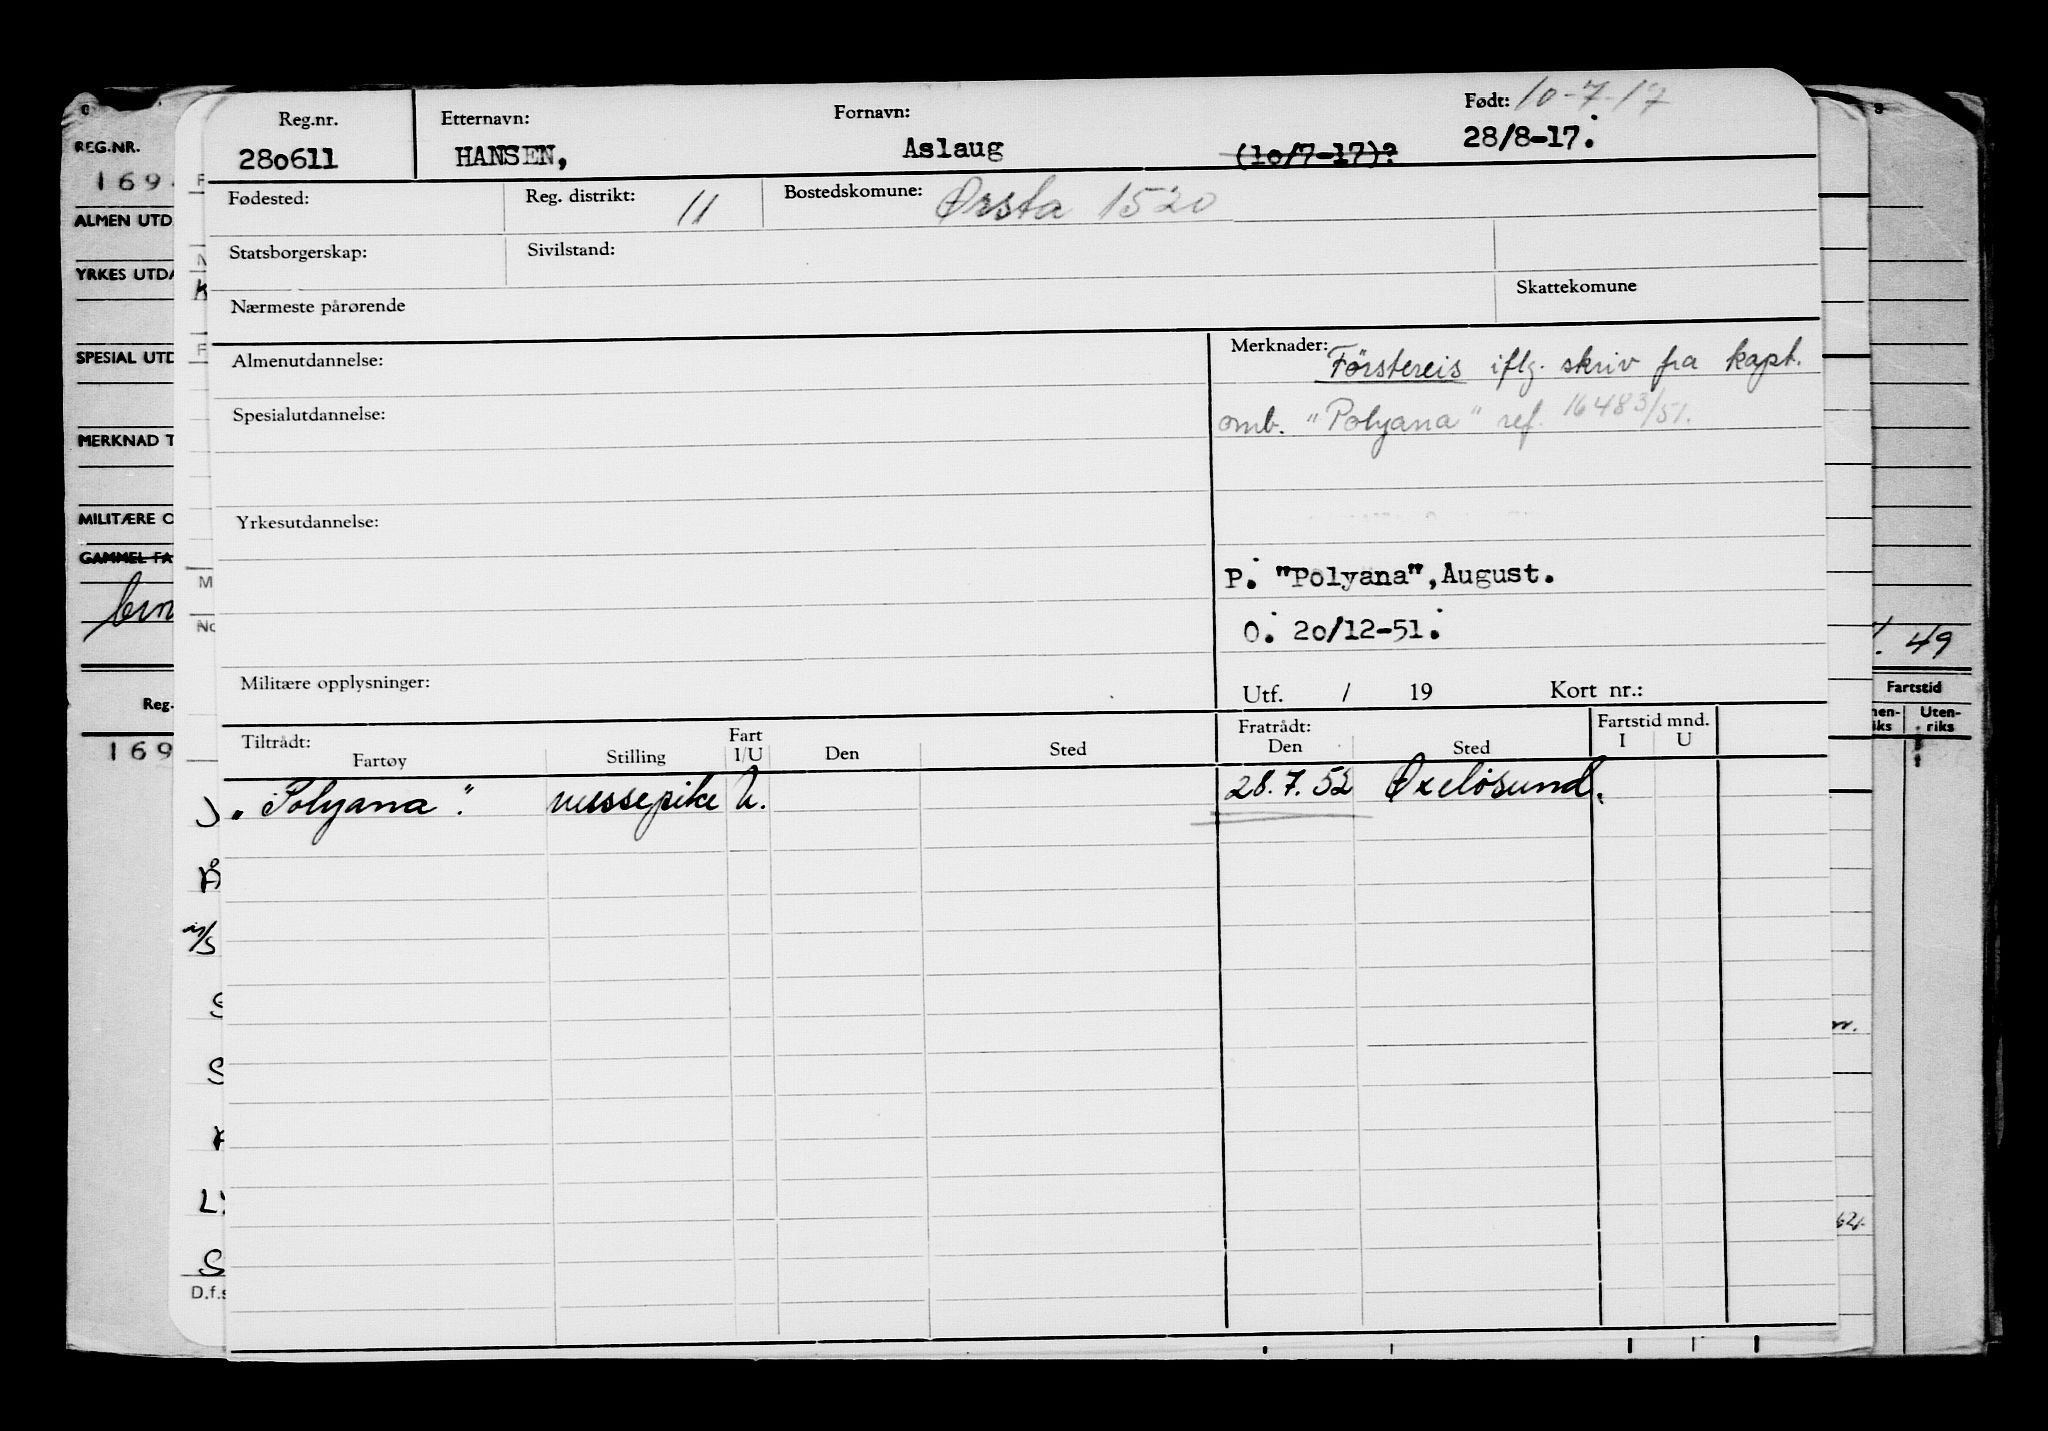 REG.NR.
169
ALMEN UTD
YRKES UTDA
SPESIAL UTD
MERKNAD T
MILITÆRE O
GAMMEL FA
Reg.
169
Reg.nr. Etternavn: Fornavn: Født: 10-7-17
280611 HANSEN, Aslaug (10/7-17)? 28/8-17.
Fødested: Reg. distrikt: 11 Bostedskomune: Ørsta 1520
Statsborgerskap: Sivilstand:
Nærmeste pårørende Skattekomune
Almenutdannelse: Merknader: Förstereis iflg. skriv fra kapt.
Spesialutdannelse: omb. "Polyana" ref. 16483/51.
Yrkesutdannelse:
P. "Polyana", August.
O. 20/12-51.
Militære opplysninger: Utf. / 19 Kort nr.:
Tiltrådt: Fratrådt: Fartstid mnd.
Fartøy Stilling Fart I/U Den Sted Den Sted I U
"Polyana". messepike U. 28.7.52 Oxelösund.
49
Fartstid
Uten-
riks
D.f.s